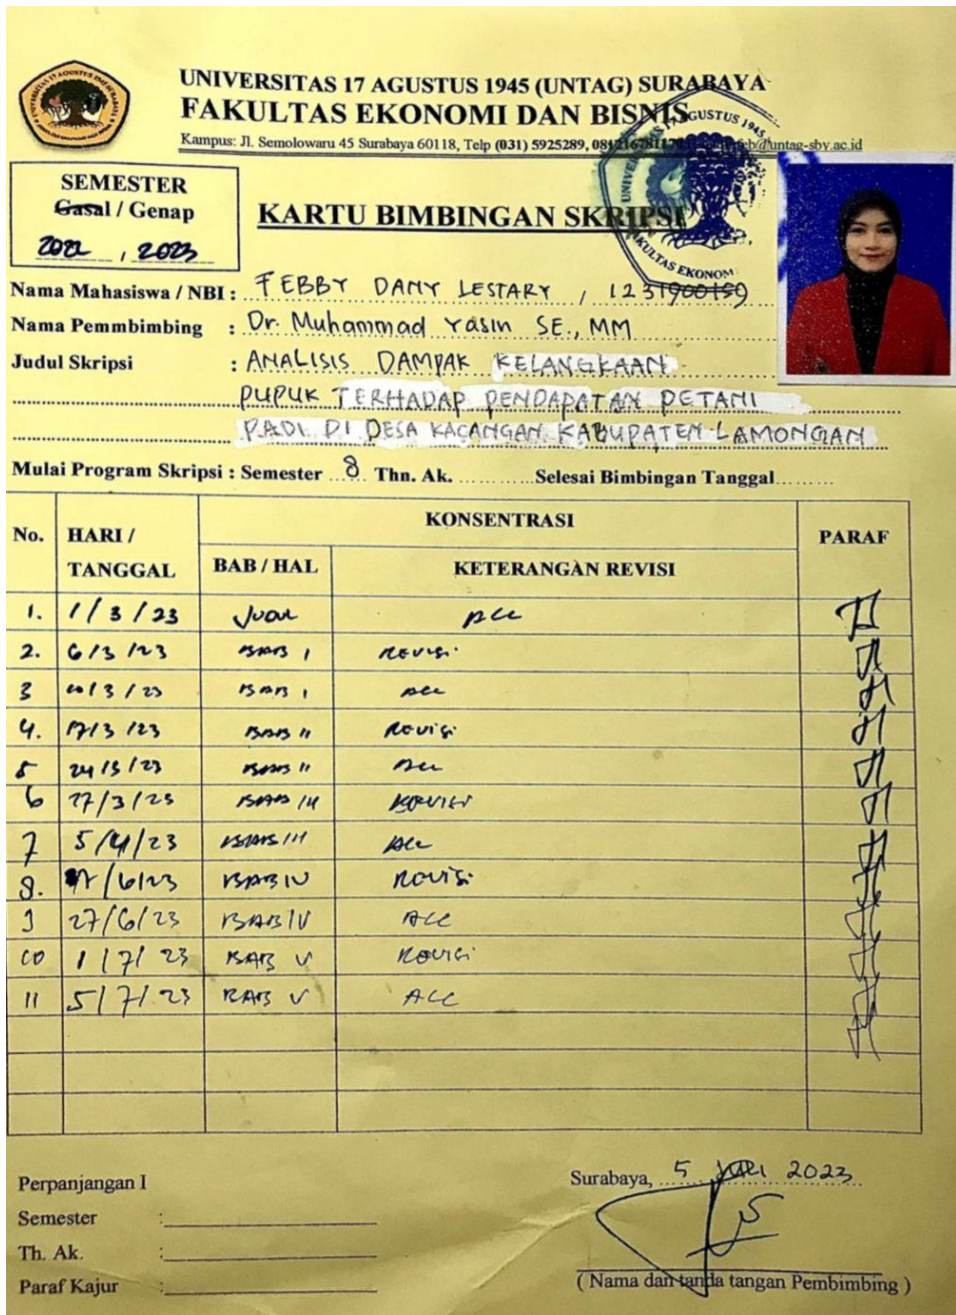 UNIVERSITAS 17 AGUSTUS 1945 (UNTAG) SURABAYA
FAKULTAS EKONOMI DAN BISNIS
Kampus: Jl. Semolowaru 45 Surabaya 60118, Telp (031) 5925289, @untag-sby.ac.id
SEMESTER
Gasal / Genap
2022 , 2023
KARTU BIMBINGAN SKRIPSI
FAKULTAS EKONOMI
Nama Mahasiswa / NBI : FEBBY DANY LESTARY , 1231900159
Nama Pemmbimbing : Dr. Muhammad Yasin SE., MM
Judul Skripsi : ANALISIS DAMPAK KELANGKAAN
PUPUK TERHADAP PENDAPATAN PETANI
PADI DI DESA KACANGAN KABUPATEN LAMONGAN
Mulai Program Skripsi : Semester 8 Thn. Ak. Selesai Bimbingan Tanggal
No. HARI / TANGGAL KONSENTRASI PARAF
BAB / HAL KETERANGAN REVISI
1. 1/3/23 Judul ACC
2. 6/3/23 BAB I Revisi
3 10/3/23 BAB I ACC
4. 17/3/23 BAB II Revisi
5 24/3/23 BAB II ACC
6 27/3/23 BAB III Revisi
7 5/4/23 BAB III ACC
8. /6/23 BAB IV Revisi
9 27/6/23 BAB IV ACC
10 1/7/23 BAB V Revisi
11 5/7/23 BAB V ACC
Perpanjangan I
Semester :
Th. Ak. :
Paraf Kajur :
Surabaya, 5 JULI 2023
( Nama dan tanda tangan Pembimbing )